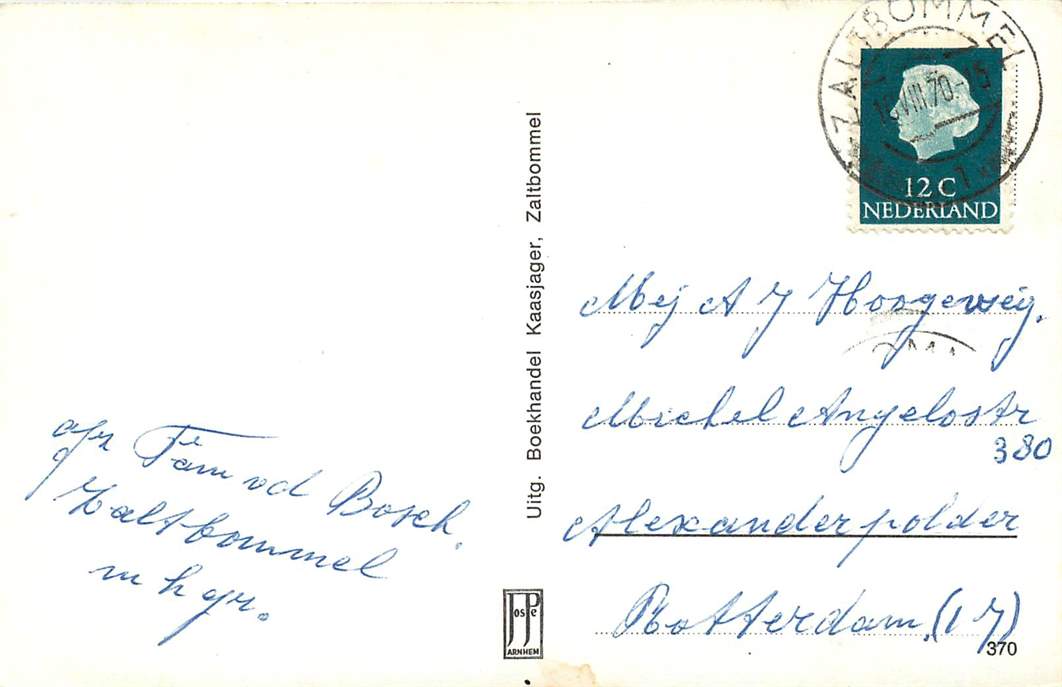 afz Fam vd Bosch.
Zaltbommel
m h gr.
Uitg. Boekhandel Kaasjager, Zaltbommel
JosPe
ARNHEM
ZALTBOMMEL
VIII.70
12 C
NEDERLAND
Mej A J Hoogerweij.
Michel Angelostr
380
Alexanderpolder
Rotterdam (17)
370